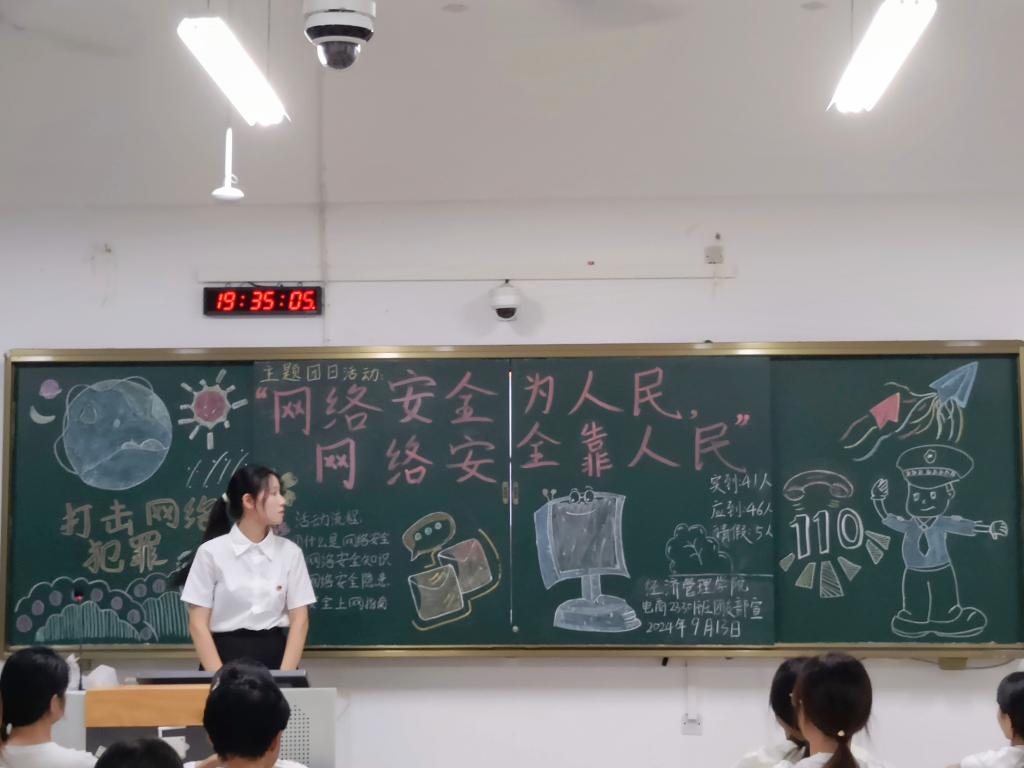 19:35:05
主题团日活动:
“网络安全为人民,
网络安全靠人民”
打击网络
犯罪
活动流程:
什么是网络安全
网络安全知识
网络安全隐患
安全上网指南
实到:41人
应到:46人
请假:5人
110
经济管理学院
团支部宣
2024年9月13日